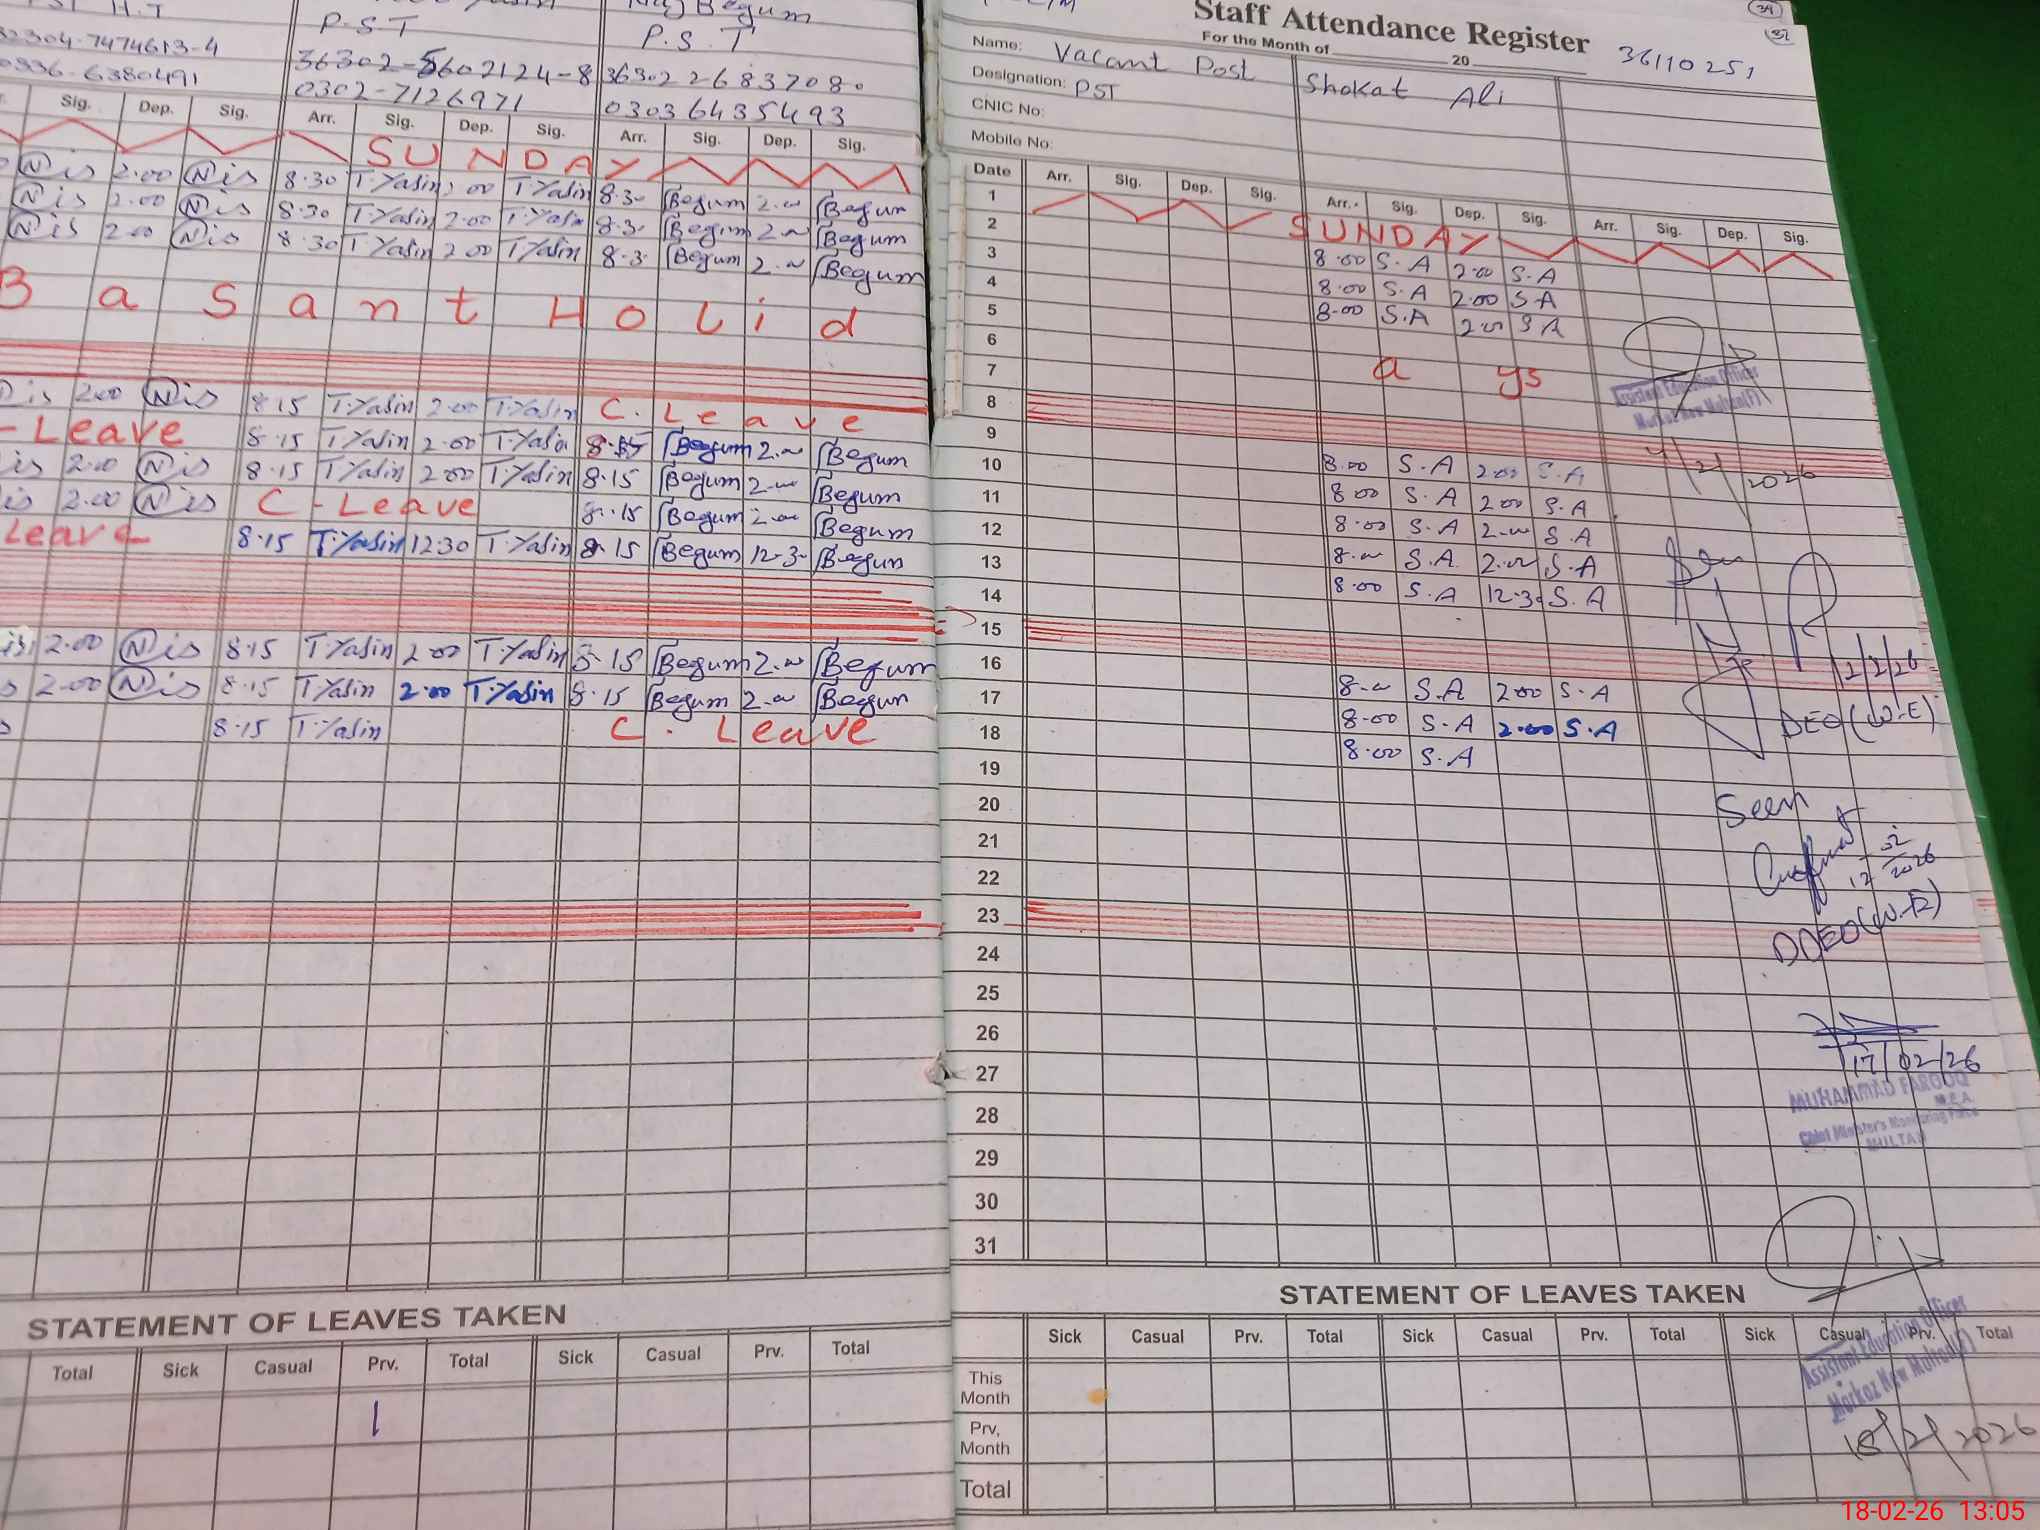 P.S.T
P.S.T
32304-7474613-4
36302-5602124-8
36302 2683708.
0336-6380491
0302-7126971
0303 6435493
Sig. Dep. Sig. Arr. Sig. Dep. Sig. Arr. Sig. Dep. Sig.
SUNDAY
N is 2.00 N is 8.30 T.Yasin 2.00 T.Yasin 8.30 Begum 2.00 Begum
N is 2.00 N is 8.30 T.Yasin 2.00 T.Yasin 8.30 Begum 2.00 Begum
N is 2.00 N is 8.30 T.Yasin 2.00 T.Yasin 8.30 Begum 2.00 Begum
Basant Holid
is 2.00 N is 8.15 T.Yasin 2.00 T.Yasin C. Leave
- Leave 8.15 T.Yasin 2.00 T.Yasin 8.15 Begum 2.00 Begum
is 2.00 N is 8.15 T.Yasin 2.00 T.Yasin 8.15 Begum 2.00 Begum
is 2.00 N is C - Leave 8.15 Begum 2.00 Begum
Leave 8.15 T.Yasin 12.30 T.Yasin 8.15 Begum 12.30 Begum
is 2.00 N is 8.15 T.Yasin 2.00 T.Yasin 8.15 Begum 2.00 Begum
2.00 N is 8.15 T.Yasin 2.00 T.Yasin 8.15 Begum 2.00 Begum
8.15 T.Yasin C. Leave
STATEMENT OF LEAVES TAKEN
Total Sick Casual Prv. Total Sick Casual Prv. Total
1
Staff Attendance Register
For the Month of 20
36110251
Name: Vacant Post Shokat Ali
Designation: PST
CNIC No:
Mobile No:
Date Arr. Sig. Dep. Sig. Arr. Sig. Dep. Sig. Arr. Sig. Dep. Sig.
1 SUNDAY
2 8.00 S.A 2.00 S.A
3 8.00 S.A 2.00 S.A
4 8.00 S.A 2.00 S.A
5
6 a ys
7
8
9 8.00 S.A 2.00 S.A
10 8.00 S.A 2.00 S.A
11 8.00 S.A 2.00 S.A
12 8.00 S.A 2.00 S.A
13 8.00 S.A 12.30 S.A
14
15
16 8.00 S.A 2.00 S.A
17 8.00 S.A 2.00 S.A
18 8.00 S.A
19
20
21
22
23
24
25
26
27
28
29
30
31
Assistant Education Officer
Markaz New Multan(F)
4/2/2026
12/2/26
DEO (W-E)
Seen
17 02/2026
DDEO (W-E)
17/02/26
MUHAMMAD FAROOQ
M.E.A.
Chief Minister's Monitoring Force
MULTAN
STATEMENT OF LEAVES TAKEN
Sick Casual Prv. Total Sick Casual Prv. Total Sick Casual Prv. Total
This Month
Prv, Month
Total
Assistant Education Officer
Markaz New Multan(F)
18/2/2026
18-02-26 13:05